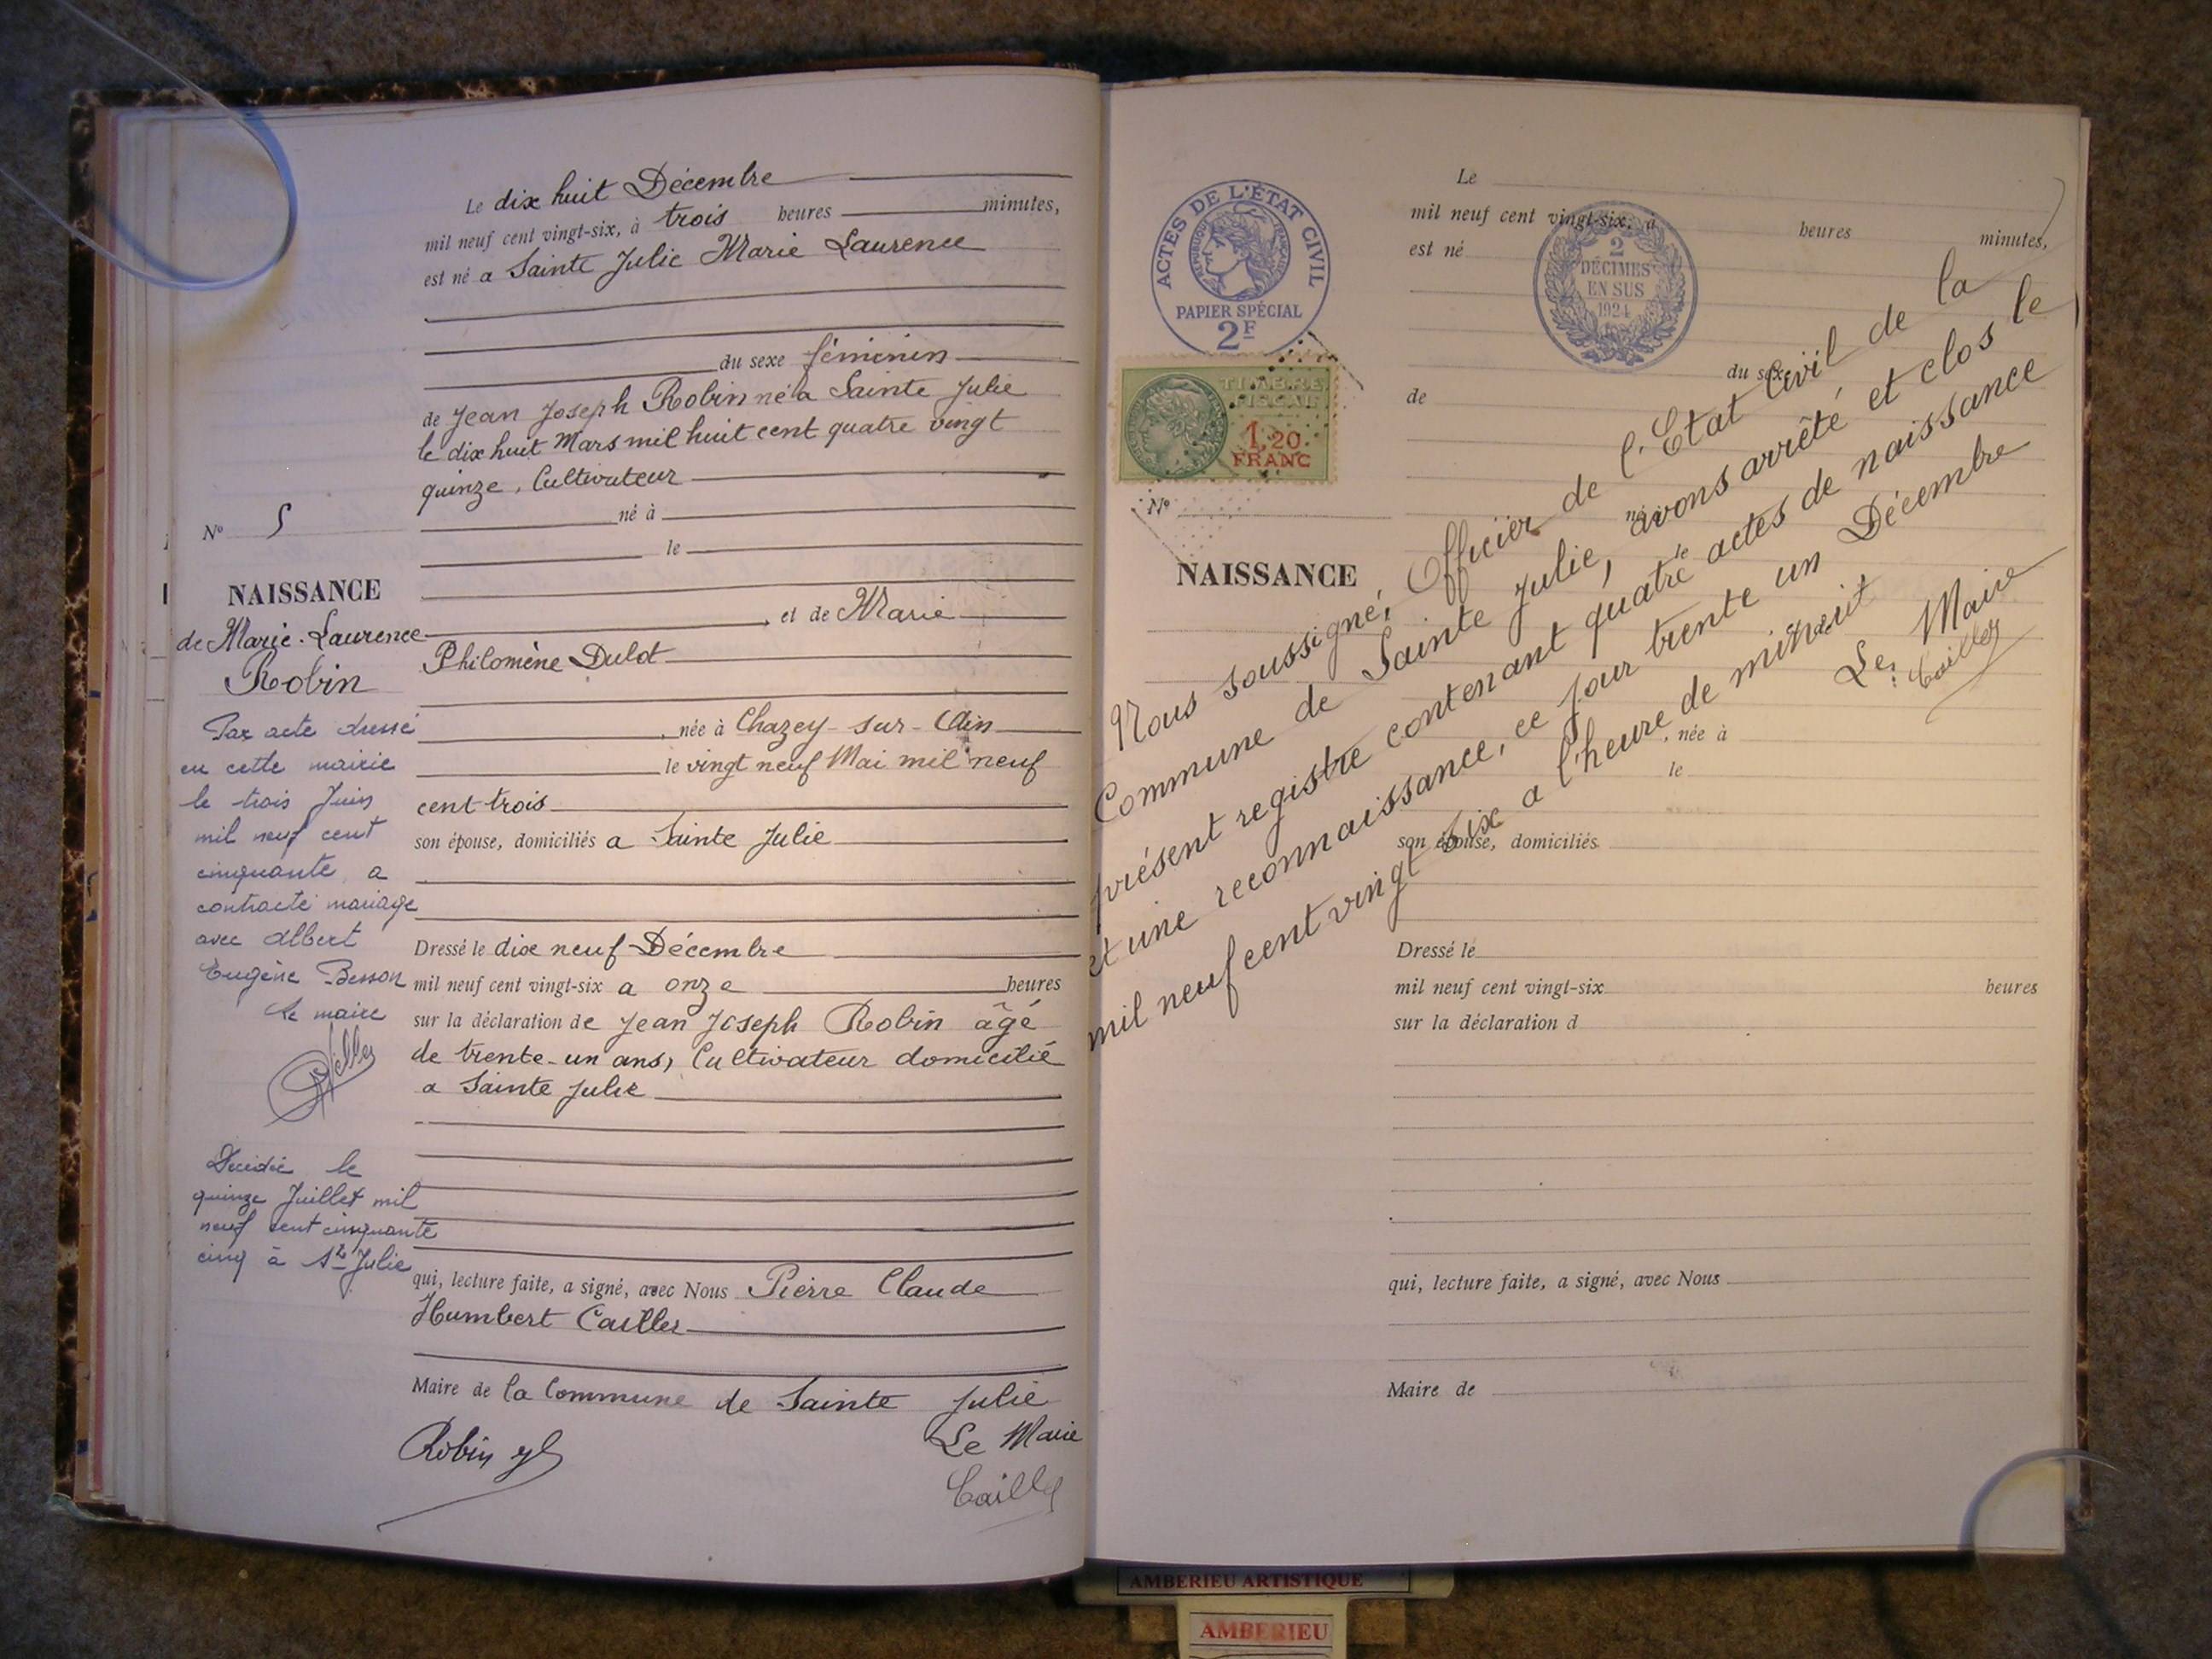 Le dix huit Décembre
mil neuf cent vingt-six, à trois heures minutes,
est né a Sainte Julie Marie Laurence
du sexe féminin
de Jean Joseph Robin né à Sainte Julie
le dix huit Mars mil huit cent quatre vingt
quinze, Cultivateur
né à
le
et de Marie
Philomène Dulot
, née à Chazey-sur-Ain
le vingt neuf Mai mil neuf
cent trois
son épouse, domiciliés a Sainte Julie
Dressé le dix neuf Décembre
mil neuf cent vingt-six a onze heures
sur la déclaration de Jean Joseph Robin âgé
de trente-un ans, Cultivateur domicilié
a Sainte Julie
qui, lecture faite, a signé, avec Nous Pierre Claude
Humbert Cailler
Maire de la Commune de Sainte Julie
Le Maire
Robin
Cailler
Nº 5
NAISSANCE
de Marie-Laurence
Robin
Par acte dressé
en cette mairie
le trois Juin
mil neuf cent
cinquante a
contracté mariage
avec Albert
Eugène Besson
Le maire
Décédée le
quinze Juillet mil
neuf cent cinquante
cinq à Ste Julie
ACTES DE L'ÉTAT CIVIL
RÉPUBLIQUE FRANÇAISE
PAPIER SPÉCIAL
2F
TIMBRE
FISCAL
1,20
FRANC
Nº
NAISSANCE
2
DÉCIMES
EN SUS
1924
Le
mil neuf cent vingt-six, à heures minutes,
est né
du sexe
de
né à
le
, née à
le
son épouse, domiciliés
Dressé le
mil neuf cent vingt-six heures
sur la déclaration d
qui, lecture faite, a signé, avec Nous
Maire de
Nous soussigné, Officier de l'Etat Civil de la
Commune de Sainte Julie, avons arrêté et clos le
présent registre contenant quatre actes de naissance
et une reconnaissance, ce jour trente un Décembre
mil neuf cent vingt six a l'heure de minuit
Le Maire
Cailler
AMBERIEU ARTISTIQUE
AMBERIEU